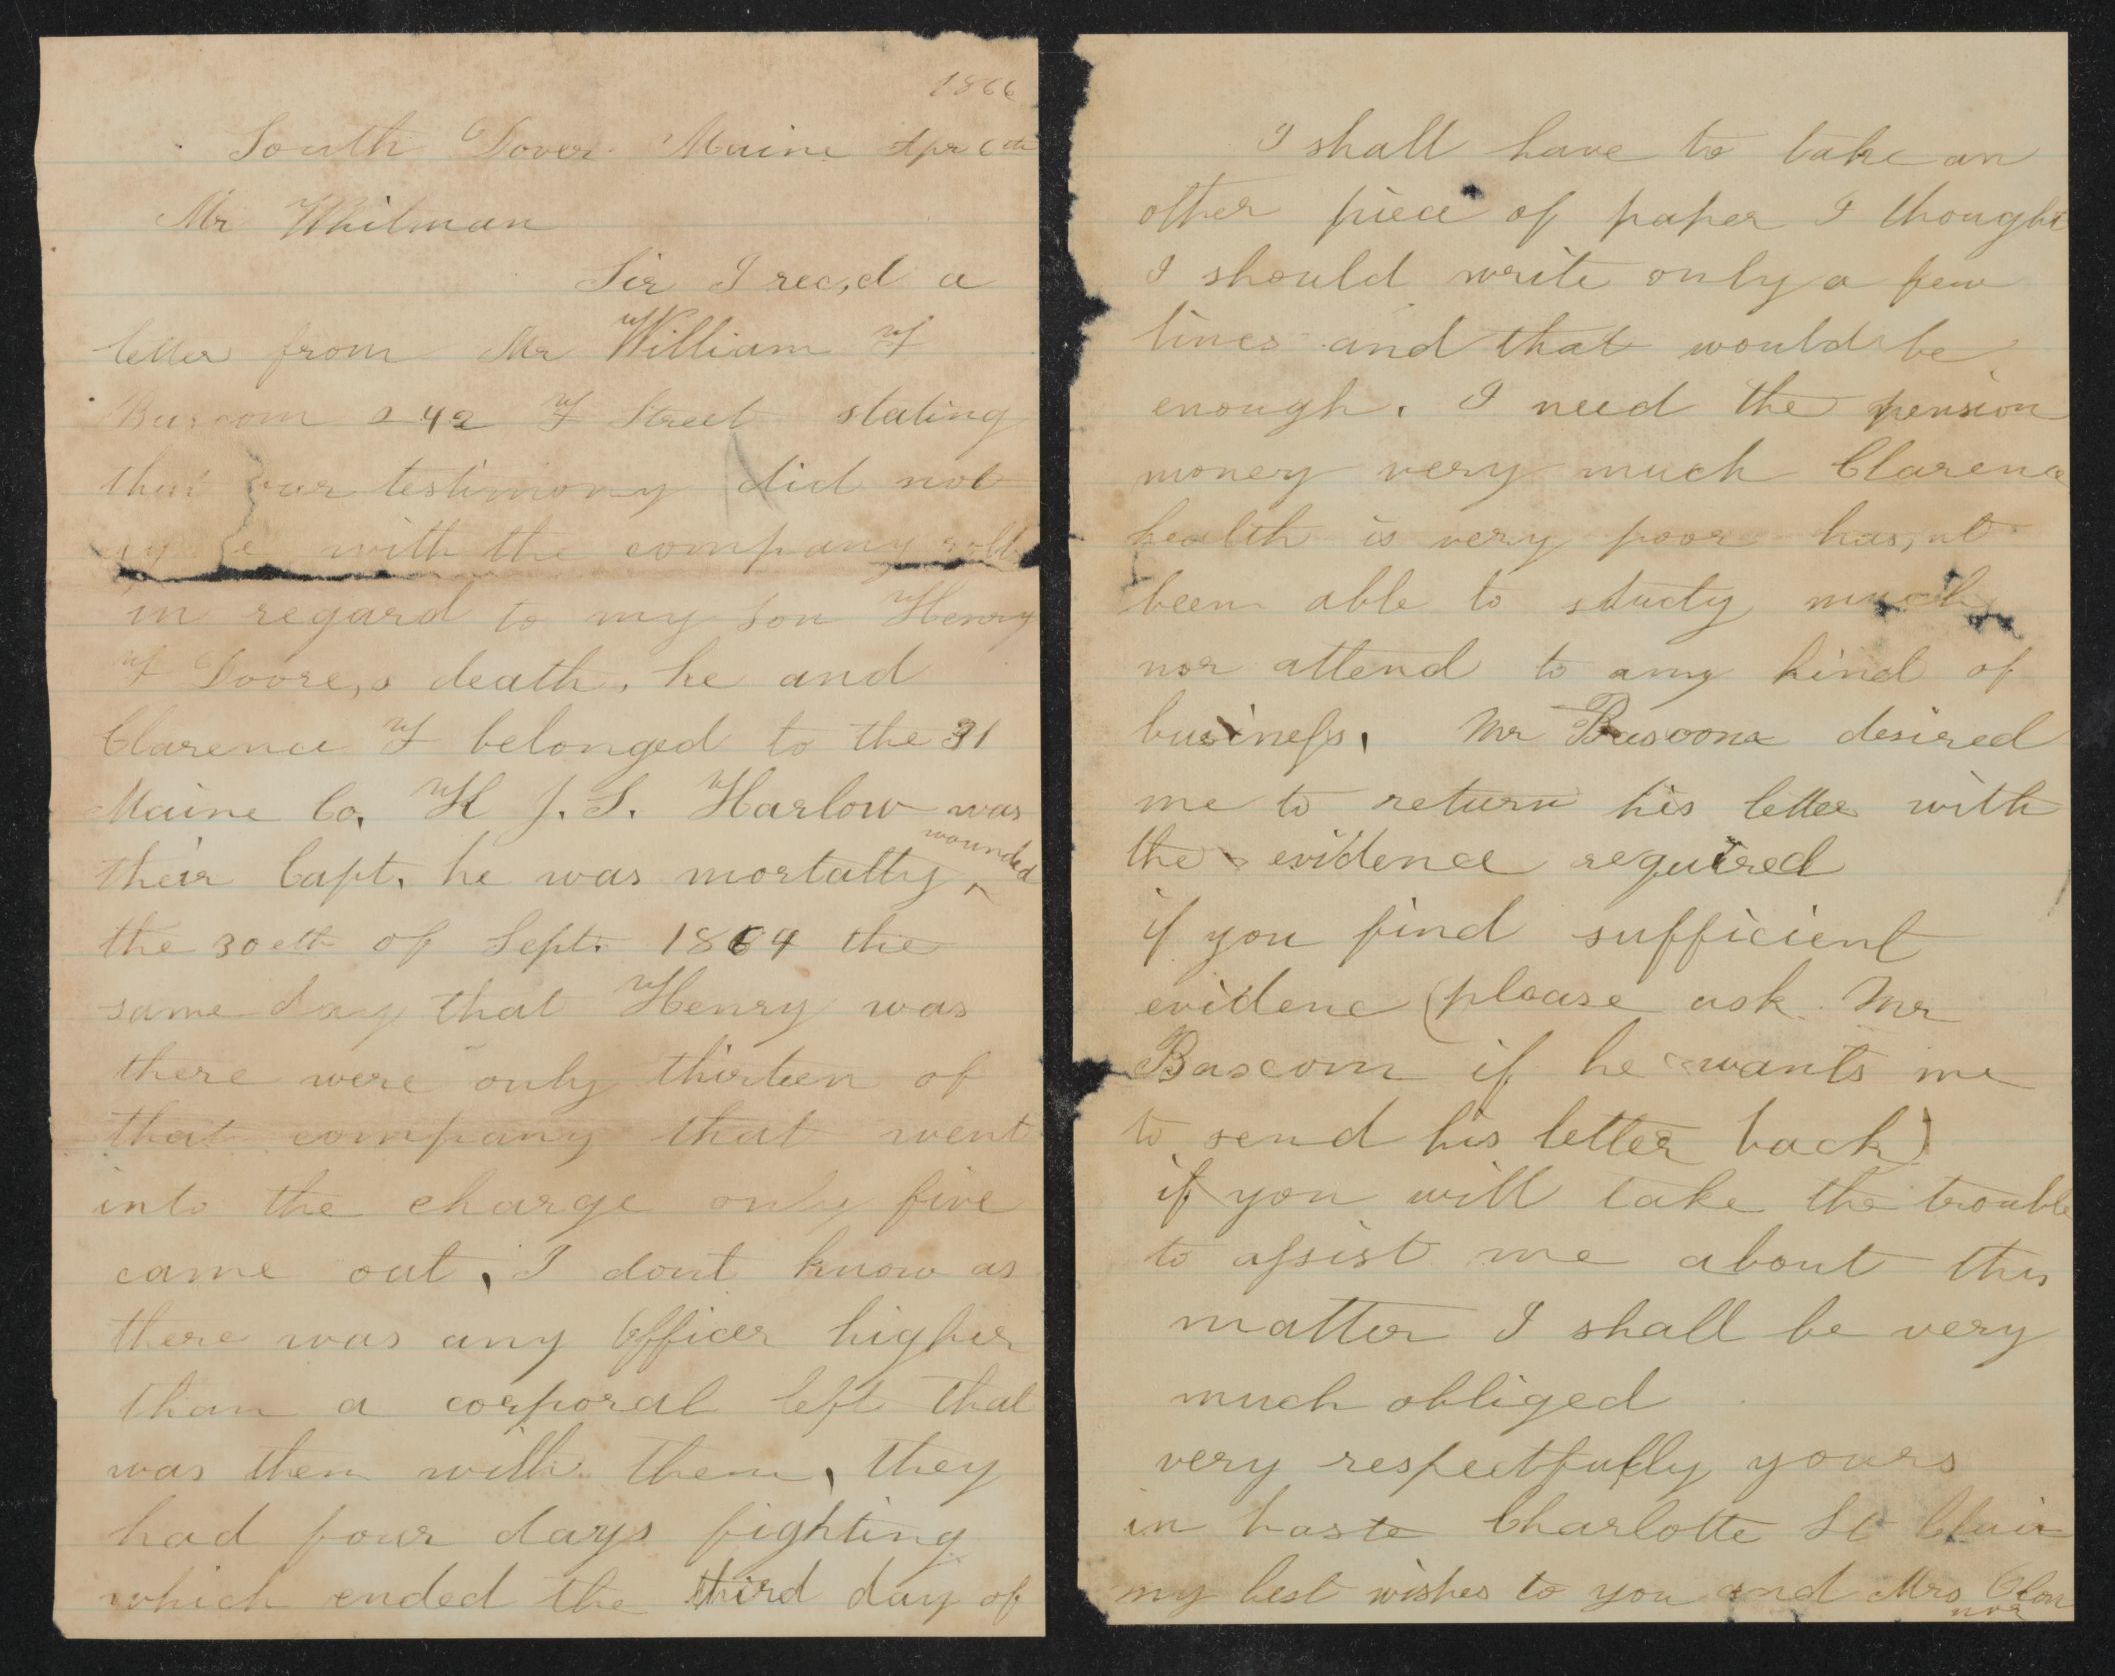 1866
South Dover Maine Apr 6th
Mr Whitman
Sir I rec,d a
letter from Mr William F
Bascom 242 F Street stating
that our testimony did not
with the company rolls
in regard to my son Henry
F Doore,s death, he and
Clarence F belonged to the 31
Maine Co, K J. S. Harlow was
wounded
their Capt, he was mortally ^
the 30eth of Sept. 1864 the
same day that Henry was
there were only thirteen of
that company that went
into the charge only five
came out, I dont know as
there was any Officer higher
than a corporal left that
was then with them, they
had four days fighting
which ended the third day of
I shall have to take an
other piece of paper I thought
I should write only a few
lines and that would be
enough. I need the pension
money very much Clarence
health is very poor has,nt
been able to study much
nor attend to any kind of
business, Mr desired
me to return his letter with
the evidence required
if you find sufficient
evidenc (please ask Mr
Bascom if he wants me
to send his letter back)
if you will take the trouble
to assist me about this
matter I shall be very
much obliged
very respectfully yours
in haste Charlotte St Clair
my best wishes to you and Mrs Ocon
nor